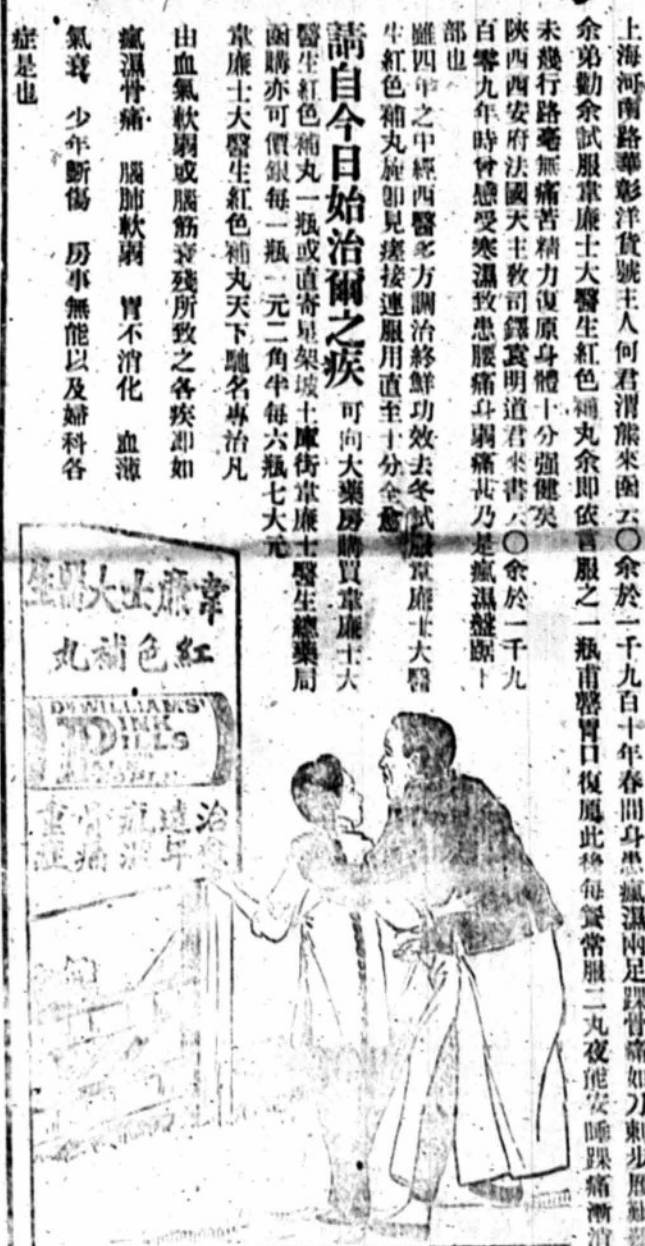 上海河南路華彰洋貨號主人何君渭熊來函云〇余於一千九百十年春間身患瘋濕兩足踝骨痛如刀刺步履艱難
余弟勸余試服韋廉士大醫生紅色補丸余即依言服之一瓶甫罄胃口復原此後每餐常服二丸夜能安睡踝痛漸消
未幾行路毫無痛苦精力復原身體十分强健矣
陝西西安府法國天主教司鐸袁明道君來書云〇余於一千九
百零九年時曾感受寒濕致患腰痛身弱痛甚乃是瘋濕盤踞
部也
雖四年之中經西醫多方調治終鮮功效去冬試服韋廉士大醫
生紅色補丸施即見瘥接連服用直至十分全愈
請自今日始治爾之疾 可向大藥房購買韋廉士大
醫生紅色補丸一瓶或直寄星架坡土庫街韋廉士醫生總藥局
函購亦可價銀每一瓶一元二角半每六瓶七大元
韋廉士大醫生紅色補丸天下馳名專治凡
由血氣軟弱或腦筋衰殘所致之各疾即如
瘋濕骨痛 腦肺軟弱 胃不消化 血薄
氣衰 少年斲傷 房事無能以及婦科各
症是也
韋廉士大醫生
紅色補丸
DR WILLIAMS'
PINK
PILLS
治
遠年
瘋濕
骨痛
重症